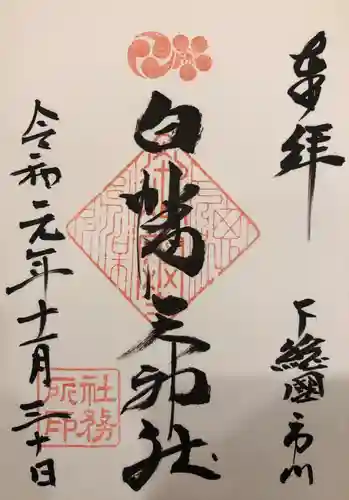 奉拝
下総國市川
白幡天神社
令和元年十一月三十日
社務所印